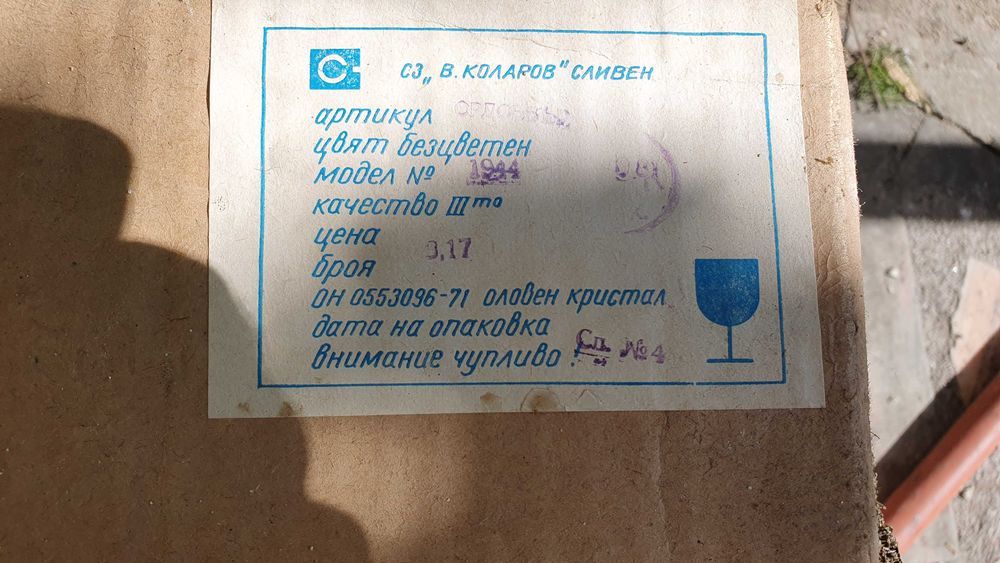 СЗ „В. КОЛАРОВ" СЛИВЕН
артикул
цвят безцветен
модел № 1944
качество III то
цена
3,17
броя
ОН 0553096-71 оловен кристал
дата на опаковка
внимание чупливо ! Сл. №4